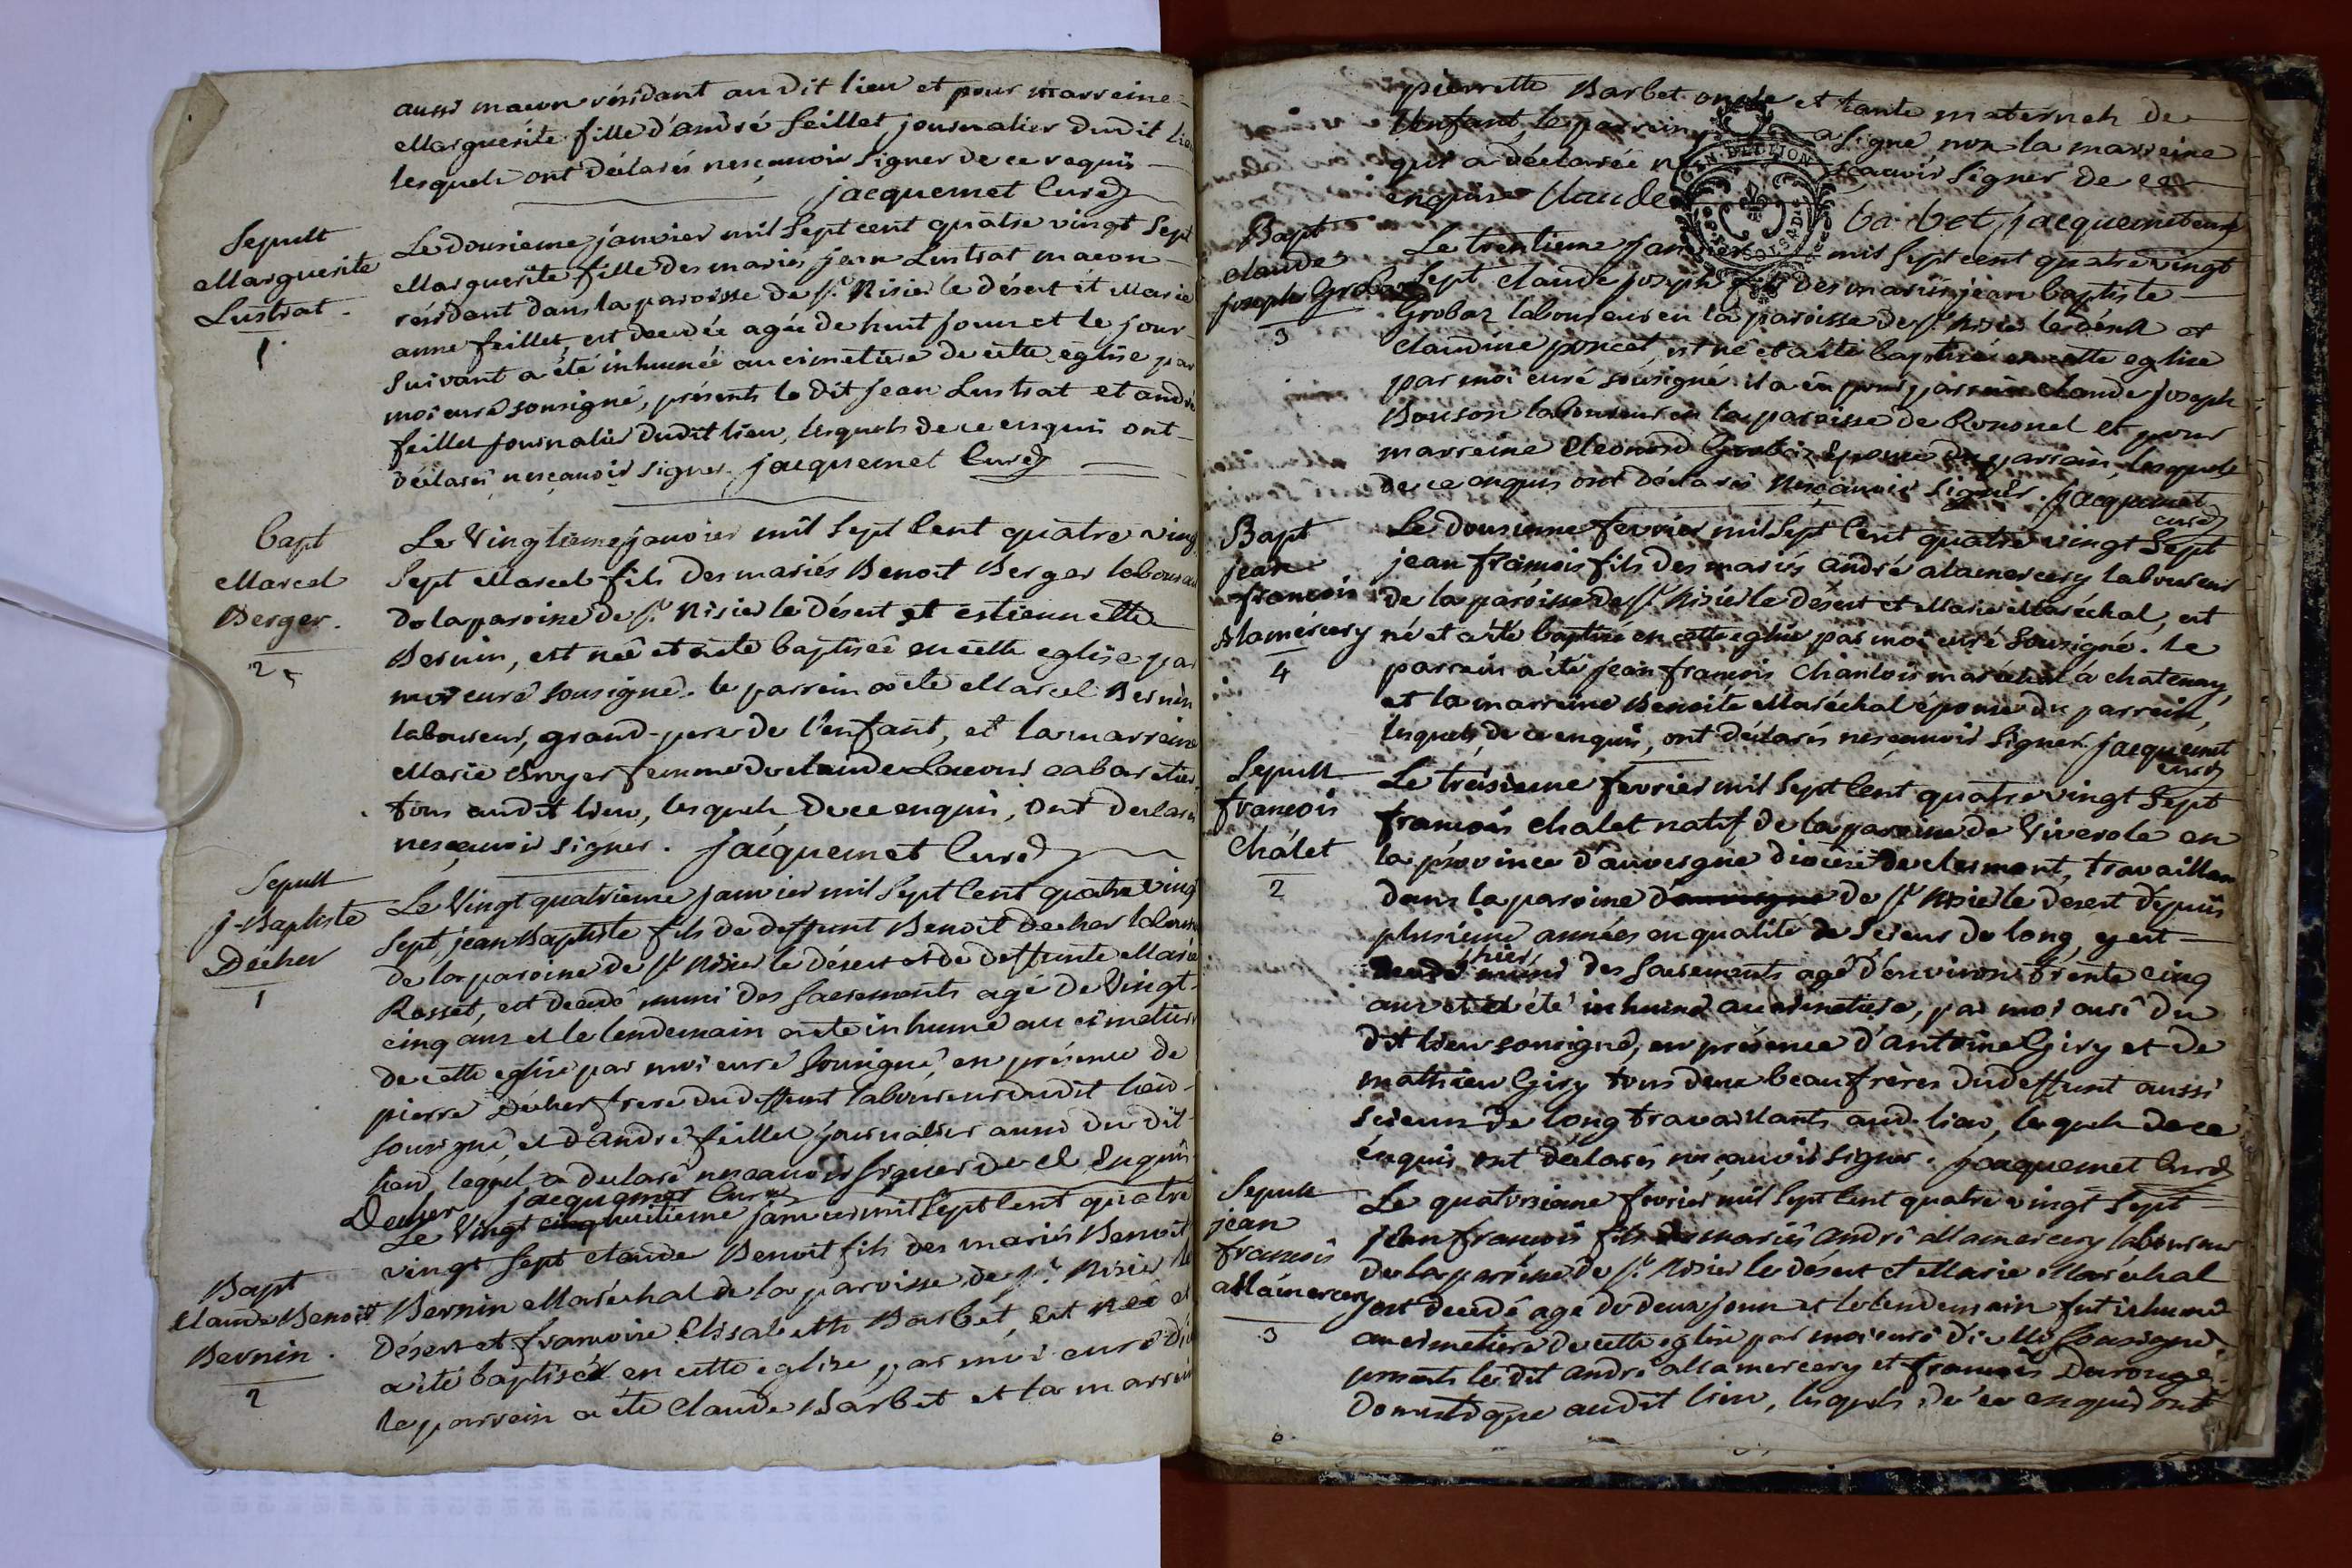 aussi maçon résidant au dit lieu et pour marreine
Marguerite fille d'andré feillet journalier dudit lieu
lesquels ont déclarés nesçauoir signer de ce requis
jacquemet Curé
Sepult
Marguerite
Lustrat
1
Le dousieme janvier mil sept cent quatre vingt sept
Marguerite fille des mariés jean Lustrat macon
résidant dans la paroisse de st Nisier le désert et Marie
anne feillet, est decedée agée de huit jours et le jour
suivant a été inhumée au cimetiere de cette eglise par
moi curé sousigné, présents le dit jean Lustrat et andré
feillet journalier dudit lieu, lesquels de ce enquis ont
déclarés nesçauoir signer. jacquemet Curé
Bapt
Marcel
Berger.
2
Le Vingtieme janvier mil sept Cent quatre vingt
sept Marcel fils des mariés Benoit Berger laboureur
de la paroisse de st Nisier le désert et estiennette
Bernin, est né et a été baptisé en cette eglise par
moi curé sousigné. le parrein a été Marcel Bernin
laboureur, grand-pere de l'enfant, et la marreine
Marie femme de claude Lacour cabaretier
tous audit lieu, lesquels, de ce enquis, ont declarés
nesçauoir signer. jacquemet Curé
Sepult
j-Baptiste
Décher
1
Le Vingt quatrieme janvier mil sept Cent quatre vingt
sept, jean Baptiste fils de deffunt Benoit Decher laboureur
de la paroisse de st Nisier le désert et de deffunte Marie
Rosset, est decedé muni des sacrements agé de Vingt
cinq ans et le lendemain a été inhumé au cimetiere
de cette eglise par moi curé sousigné en présence de
pierre Decher frere du deffunt laboureur dudit lieu
sousigné, et d'andré feillet journalier aussi du dit
lieu, lequel a déclaré nescauoir signer de ce enquis
Decher jacquemet Curé
Bapt
Claude Benoit
Bernin.
2
Le Vingt cinq huitieme janvier mil sept Cent quatre
vingt sept claude Benoit fils des mariés Benoit
Bernin Maréchal de la paroisse de st Nisier le
désert et françoise Elisabeth Barbet, est né et
a été baptisé en cette eglise, par moi curé
le parrein a été Claude Barbet et la marreine
pierrette Barbet oncle et tante maternels de
l'enfant, le parrein a signé non la marreine
qui a déclarée sçauoir signer de ce
enquise Claude barbet jacquemet curé
Bapt
claude
joseph Grobaz
3
Le trentieme janvier mil sept cent quatre vingt
sept claude joseph fils des mariés jean baptiste
Grobaz laboureur en la paroisse de st Nisier le désert et
claudine poncet, est né et a été baptisé en cette eglise
par moi curé sousigné. il a eu pour parrein claude joseph
Bouson laboureur en la paroisse de Ronsnel et pour
marreine Eleonord Grobaz épouse du parrain, lesquels
de ce enquis ont déclarés nesçauoir signer. jacquemet
curé
Bapt
jean
francois
Alamercery
4
Le dousieme fevrier mil sept Cent quatre vingt sept
jean françois fils des mariés andré alamercery laboureur
de la paroisse de st Nisier le désert et Marie Maréchal, est
né et a été baptisé en cette eglise par moi curé sousigné. le
parrein a été jean françois Chanlois maréchal à chatenay,
et la marreine Benoite Maréchal épouse du parrein,
lesquels, de ce enquis, ont déclarés nescauoir signer. jacquemet
curé
Sepult
françois
Chalet
2
Le treisieme fevrier mil sept Cent quatre vingt sept
françois chalet natif de la paroisse de Viverole en
la province d'auvergne diocèse de clermont, travaillant
dans la paroisse d'auvergne de st Nisier le desert depuis
plusieurs années en qualité de scieur de long, y est
decedé hier muni des sacrements agé d'environ trente cinq
ans et a été inhumé au cimetiere, par moi curé du
dit lieu sousigné, en présence d'antoine Giry et de
mathieu Giry tous deux beaufrères du deffunt aussi
scieurs de long travaillants aud. lieu, lesquels de ce
enquis ont déclarés nesçauoir signer. jacquemet Curé
Sepult
jean
francois
allamercery
3
Le quatorsieme fevrier mil sept Cent quatre vingt sept
jean françois fils des mariés andré allamercery laboureur
de la paroisse de st Nisier le désert et Marie Maréchal
est decedé agé de deux jours et le lendemain fut inhumé
au cimetiere de cette eglise par moi curé d'icelle sousigné.
presents le dit andré allamercery et françois Durouge
Domestique audit lieu, lesquels de ce enquis ont